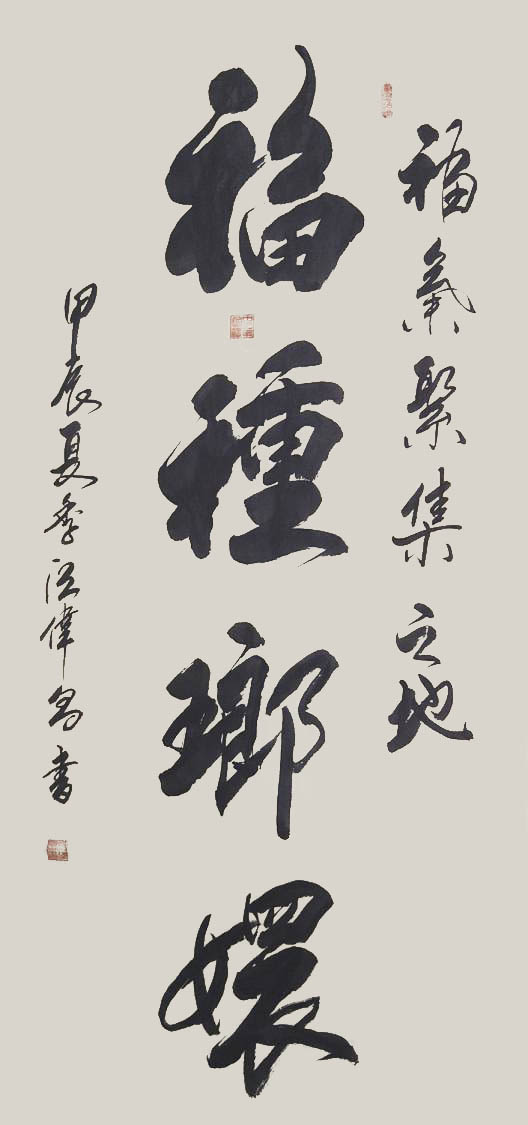 福氣聚集之地
福種瑯嬛
甲辰夏季江偉昌書